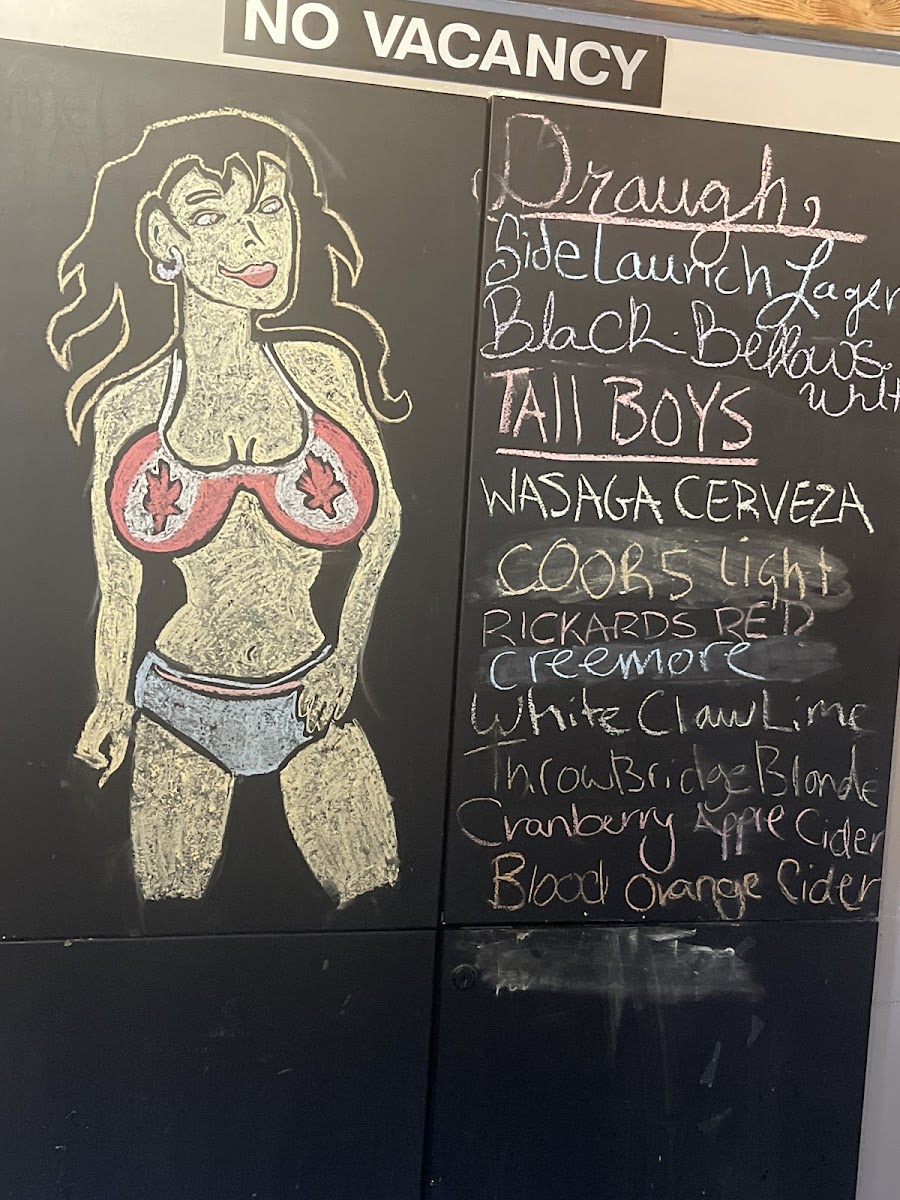 NO VACANCY
Draugh
Side Launch Lager
Black Bellows
Tall BOYS
WASAGA CERVEZA
COORS light
RICKARDS RED
creemore
White Claw Lime
ThrowBridge Blonde
Cranberry Apple Cider
Blood Orange Cider